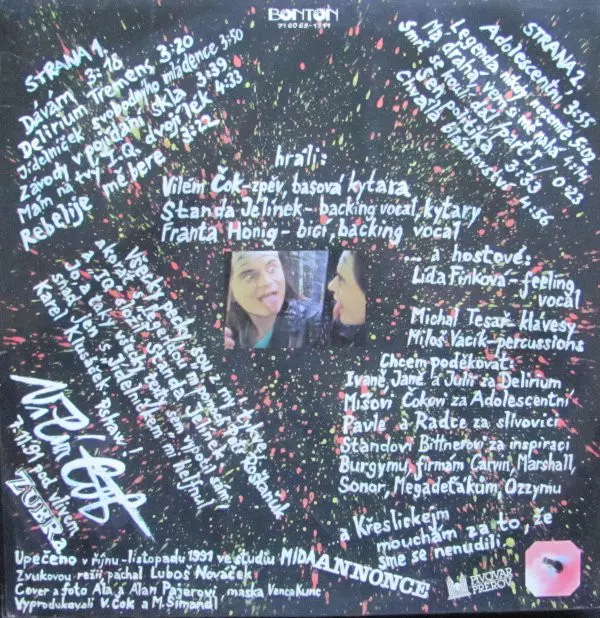 BONTON
71 0068-1311
STRANA 1.
Dávám 3:18
Delirium Tremens 3:20
Jídelníček svobodního mládence 3:50
Závody v pojídání skla 3:39
Mám na tvý I.Q. dvojřlek 4:33
Rebelije mě bere 3:22
STRANA 2.
Adolescentní 3:55
Legenda nikdy nezemře 5:02
Má drahá vem si mě 4:14
Smrt se houf dál /part I./ 0:23
Seh politika 3:33
Chvála bláznovství 4:56
hráli:
Vilém Čok-zpěv, basová kytara
Standa Jelínek-backing vocal, kytary
Franta Hönig-bicí, backing vocal
... a hostové:
Lída Finková-feeling
vocal
Michal Tesař-klávesy
Miloš Vacík-percussions
Chcem poděkovat:
Ivaně, Janě a Julii za Delirium
Míšovi Čokovi za Adolescentní
Pavle a Radce za slivovici
Standovi Bittnerovi za inspiraci
Burgymu, firmám Carvin, Marshall,
Sonor, Megadeťákům, Ozzymu
a Křeslickejm
mouchám za to, že
sme se nenudili
Všecky hadky sou z mý tykve,
akorát s Legendou mi pomoh Petr Roškaňuk
a IQ složil Standa Jelínek!
Jo, a taky všecky texty sem vypotil sám,
snad jen s Jídelníčkem mi helfnul
Karel Klusáček Pshaw!
7.11.91 pod vlivem
ZUBRa
Upečeno v říjnu-listopadu 1991 ve studiu MIDA
ANNONCE
Zvukovou režii páchal Luboš Nováček
Cover a foto Ala a Alan Pajerovi, maska Venca Kunc
Vyprodukovali V. Čok a M. Šimandl
PIVOVAR
PŘEROV